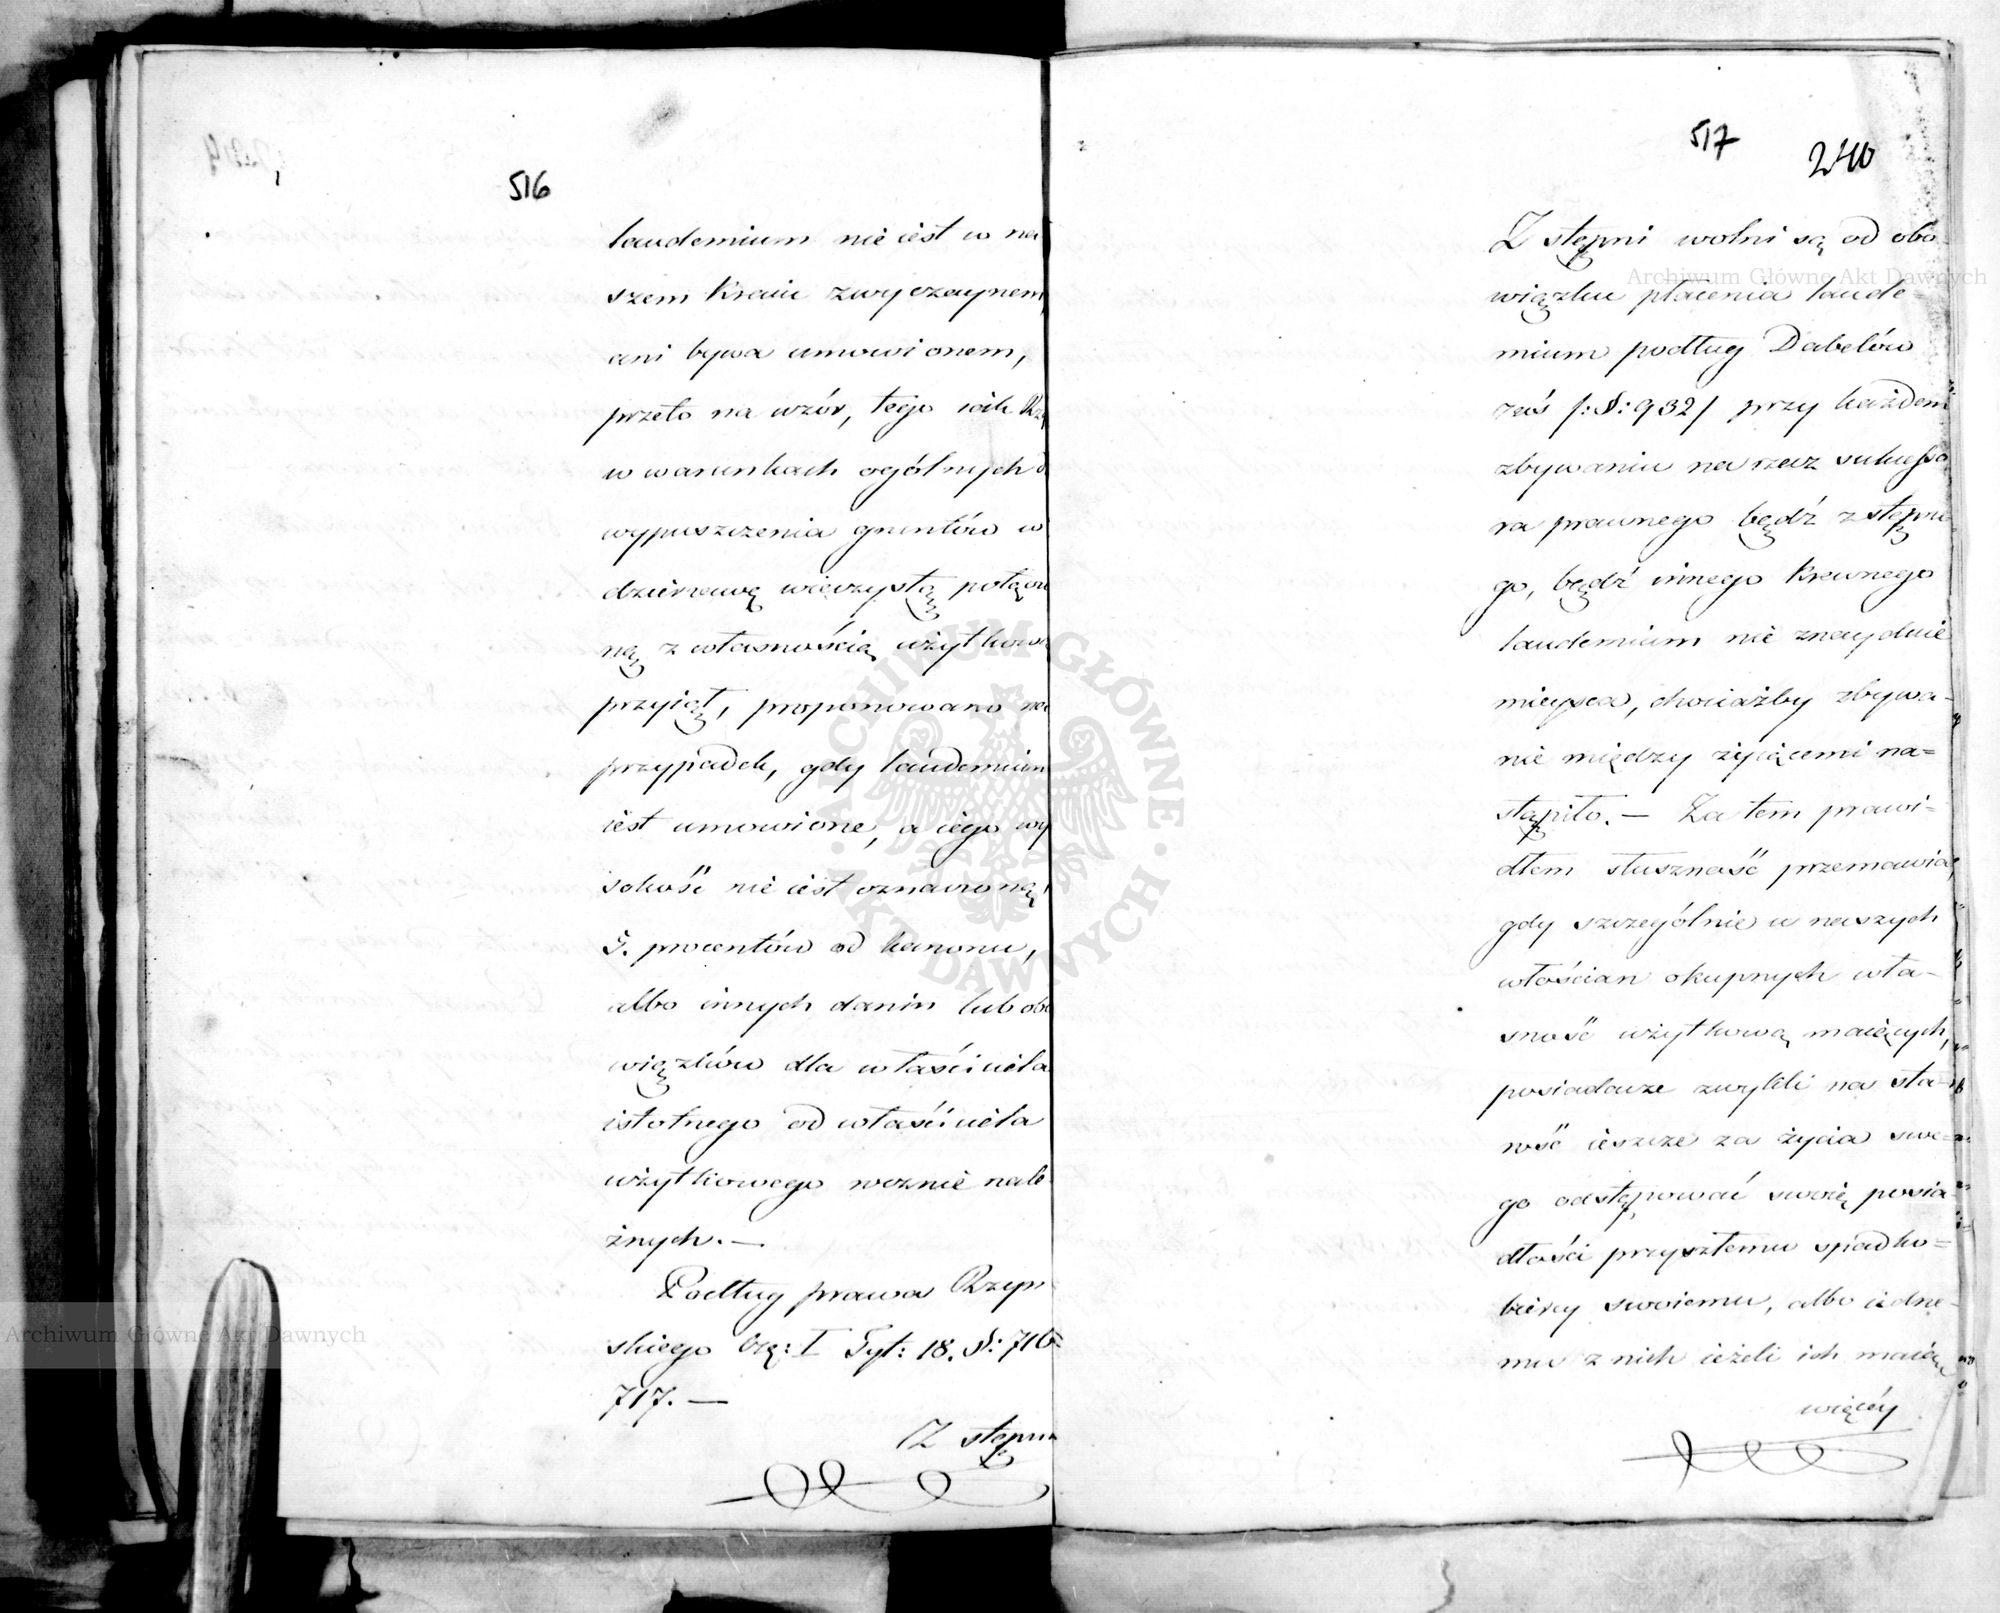 516
laudemium nie iest w na
szem Kraiu zwyczaynem,
ani bywa umowionem,
przeto na wzór, tego iak Rzą
w warunkach ogólnych d
wypuszczenia gruntów w
dzierzawę wieczystą połączo
ną z własnością użytkow
przyiął, proponowano na
przypadek, gdy laudemium
iest umowione, a iego wy
sokość nie iest oznaczoną,
5. procentów od kanonu,
albo innych danin lub obo
wiązków dla właściciela
istotnego od właściciela
użytkowego rocznie nale
żnych. —
Podług prawa Rzym
skiego Czę: I Tyt: 18. §: 716
717. —
Zstępni
517
240
Zstępni wolni są od obo-
wiązku płacenia laude=
mium podług Dabelów
zaś /: §: 932/ przy każdem
zbywaniu na rzecz sukcesso
ra prawnego bądź zstępne
go, bądź innego Krewnego
laudemium nie znayduie
mieysca, chociażby zbywa-
nie między żyiącemi na=
stąpiło. — Za tem prawi=
dłem słuszność przemawia,
gdy szczególnie u naszych
włościan okupnych wła-
sność użytkową maiących,
posiadacze zwykli na sta-
rość ieszcze za życia swe=
go odstępować swoię posia-
dłości przyszłemu spadko=
biercy swoiemu, albo iedne-
mu z nich ieżeli ich maią
więcéy
Archiwum Główne Akt Dawnych
Archiwum Główne Akt Dawnych
ARCHIWUM GŁÓWNE · AKT DAWNYCH ·